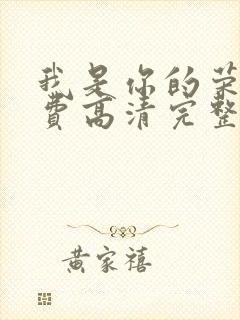 我是你的荣
费高清完整
黄家禧